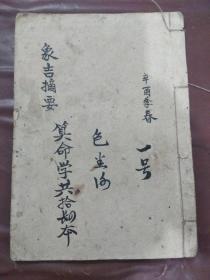 辛酉季春
一号
象吉摘要
算命学共拾捌本